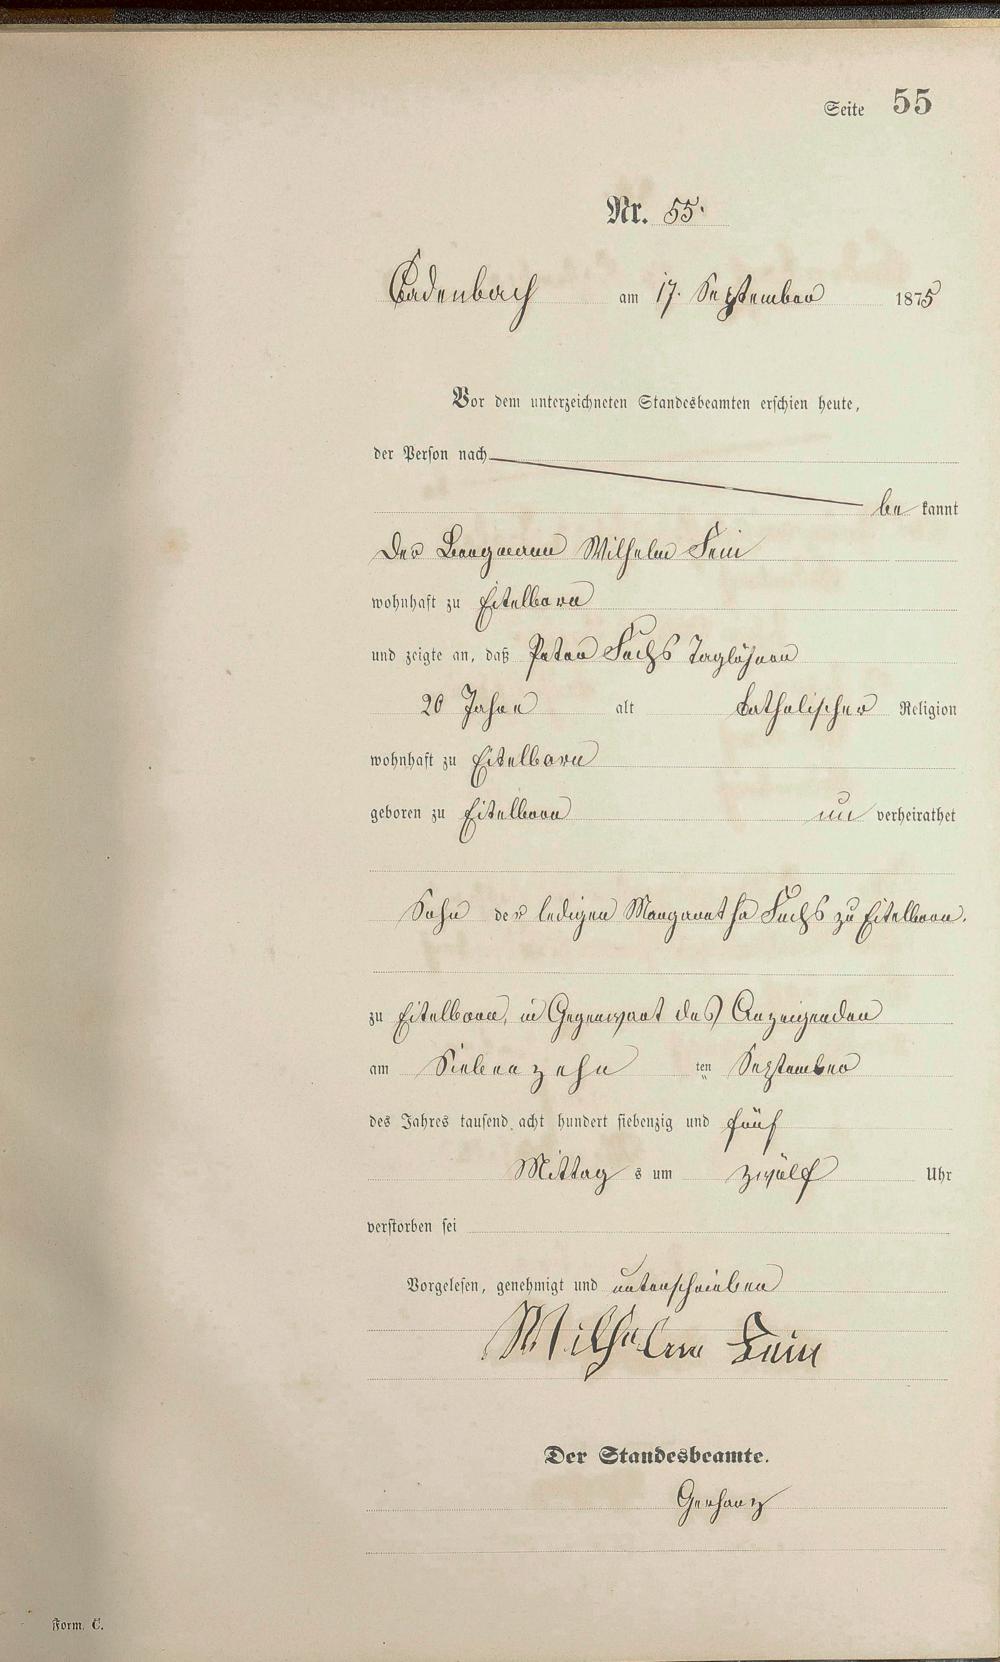 Seite 55
Nr. 55.
Cadenbach am 17. September 1875
Vor dem unterzeichneten Standesbeamten erschien heute,
der Person nach
be kannt
Der Bergmann Wilhelm Fein
wohnhaft zu Eitelborn
und zeigte an, daß Peter Fuchs Taglöhner
20 Jahre alt katholischer Religion
wohnhaft zu Eitelborn
geboren zu Eitelborn un verheirathet
Sohn der ledigen Margaretha Fuchs zu Eitelborn.
zu Eitelborn, in Gegenwart des Anzeigenden
am Siebenzehn ten September
des Jahres tausend acht hundert siebenzig und fünf
Mittag s um zwölf Uhr
verstorben sei
Vorgelesen, genehmigt und unterschrieben
Wilhelm Fein
Der Standesbeamte.
Gerharz
Form. C.